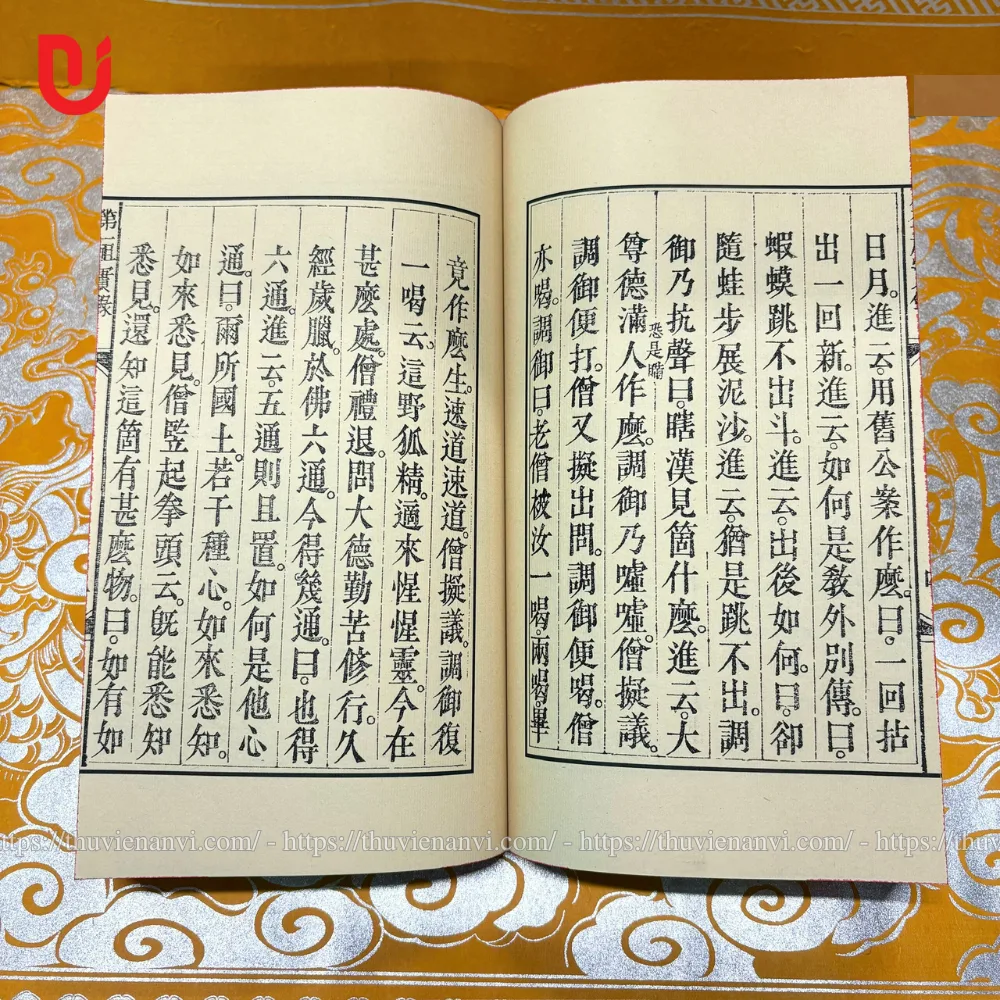 日月。進云。用舊公案作麼。曰。一回拈
出一回新。進云。如何是教外別傳。曰。
蝦蟆跳不出斗。進云。出後如何。曰。卻
隨蛙步展泥沙。進云。猶是跳不出。調
御乃抗聲曰。瞎漢見箇什麼。進云。大
尊德滿人作麼。調御乃噓噓。僧擬議。
恐是瞞
調御便打。僧又擬出問。調御便喝。僧
亦喝。調御曰。老僧被汝一喝。兩喝。畢
竟作麼生。速道速道。僧擬議。調御復
一喝云。這野狐精。適來惺惺靈。今在
甚麼處。僧禮退。問大德勤苦修行。久
經歲臘。於佛六通。今得幾通。曰。也得
六通。進云。五通則且置。如何是他心
通。曰。爾所國土。若干種心。如來悉知。
如來悉見。僧竪起拳頭云。旣能悉知
悉見。還知這箇有甚麼物。曰。如有如
第一祖實錄
https://thuvienanvi.com/ - https://thuvienanvi.com/ - https://thuvienanvi.com/